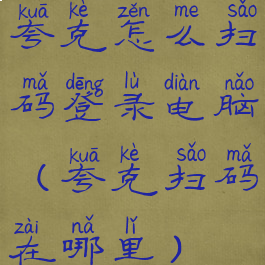 kuā kè zěn me sǎo
夸克怎么扫
mǎ dēng lù diàn nǎo
码登录电脑
kuā kè sǎo mǎ
(夸克扫码
zài nǎ lǐ
在哪里)